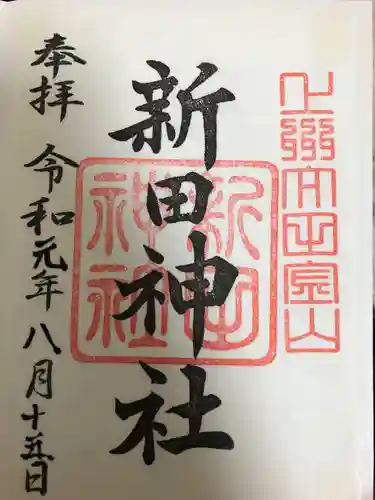 新田神社
奉拝
令和元年八月十五日
新田
神社